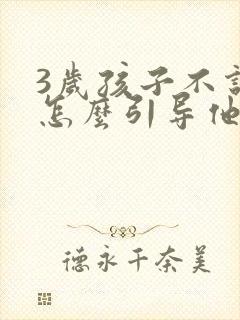 3歲孩子不
怎麼引导他
德永千奈美